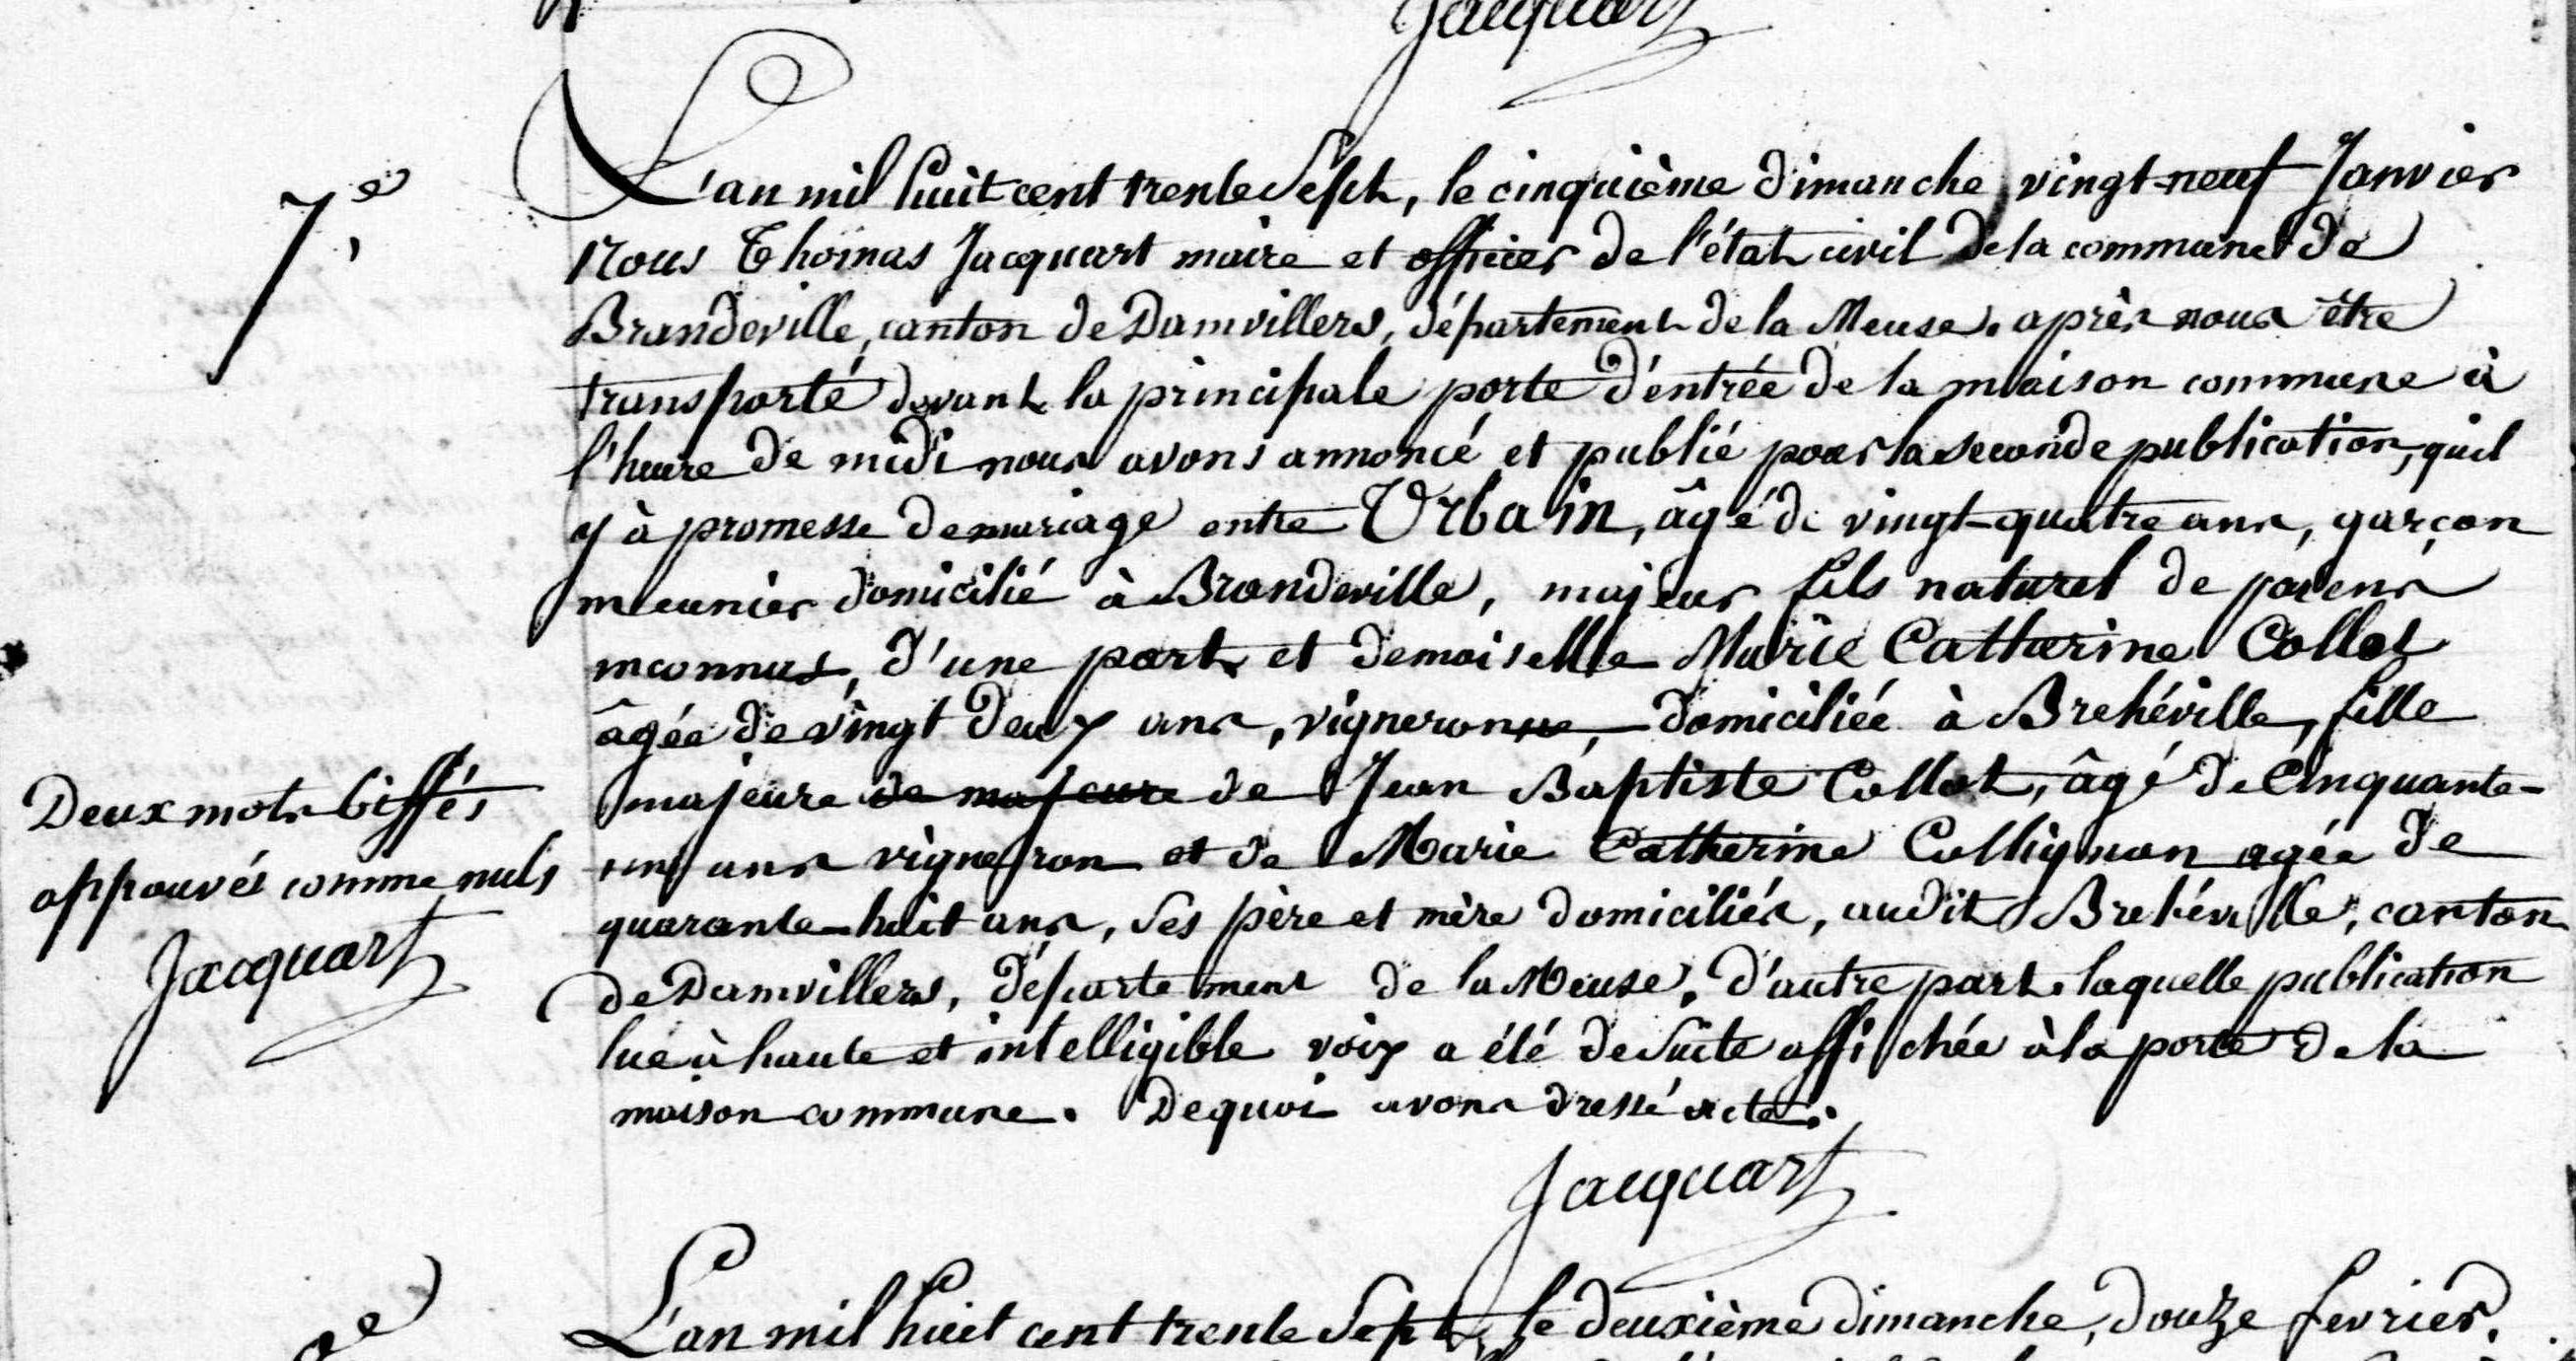 Jacquart
7e
L'an mil huit cent trente Sept, le cinquième dimanche vingt-neuf Janvier
Nous Thomas Jacquart maire et officier de l'état civil de la commune de
Brandeville, canton de Damvillers, département de la Meuse. après nous être
transporté devant la principale porte d'entrée de la maison commune à
l'heure de midi nous avons annoncé et publié pour la seconde publication, quil
y à promesse de mariage entre Urbain, âgé de vingt-quatre ans, garçon
meunier domicilié à Brandeville, majeur fils naturel de parens
inconnus, d'une part et demoiselle Marie Catharine Collot
âgée de vingt deux ans, vigneronne, domiciliée à Brehéville, fille
majeure de majeure de Jean Baptiste Collot, âgé de Cinquante-
un ans vigneron et de Marie Catherine Collignon agée de
quarante-huit ans, ses père et mère domiciliés, audit Brehéville, canton
de Damvillers, département de la Meuse, d'autre part. laquelle publication
lue à haute et intelligible voix a été de suite affichée à la porte de la
maison commune. De quoi avons dressé acte.
Deux mots biffés
appouvés comme nuls
Jacquart
Jacquart
L'an mil huit cent trente Sept, le deuxième dimanche, douze fevrier.